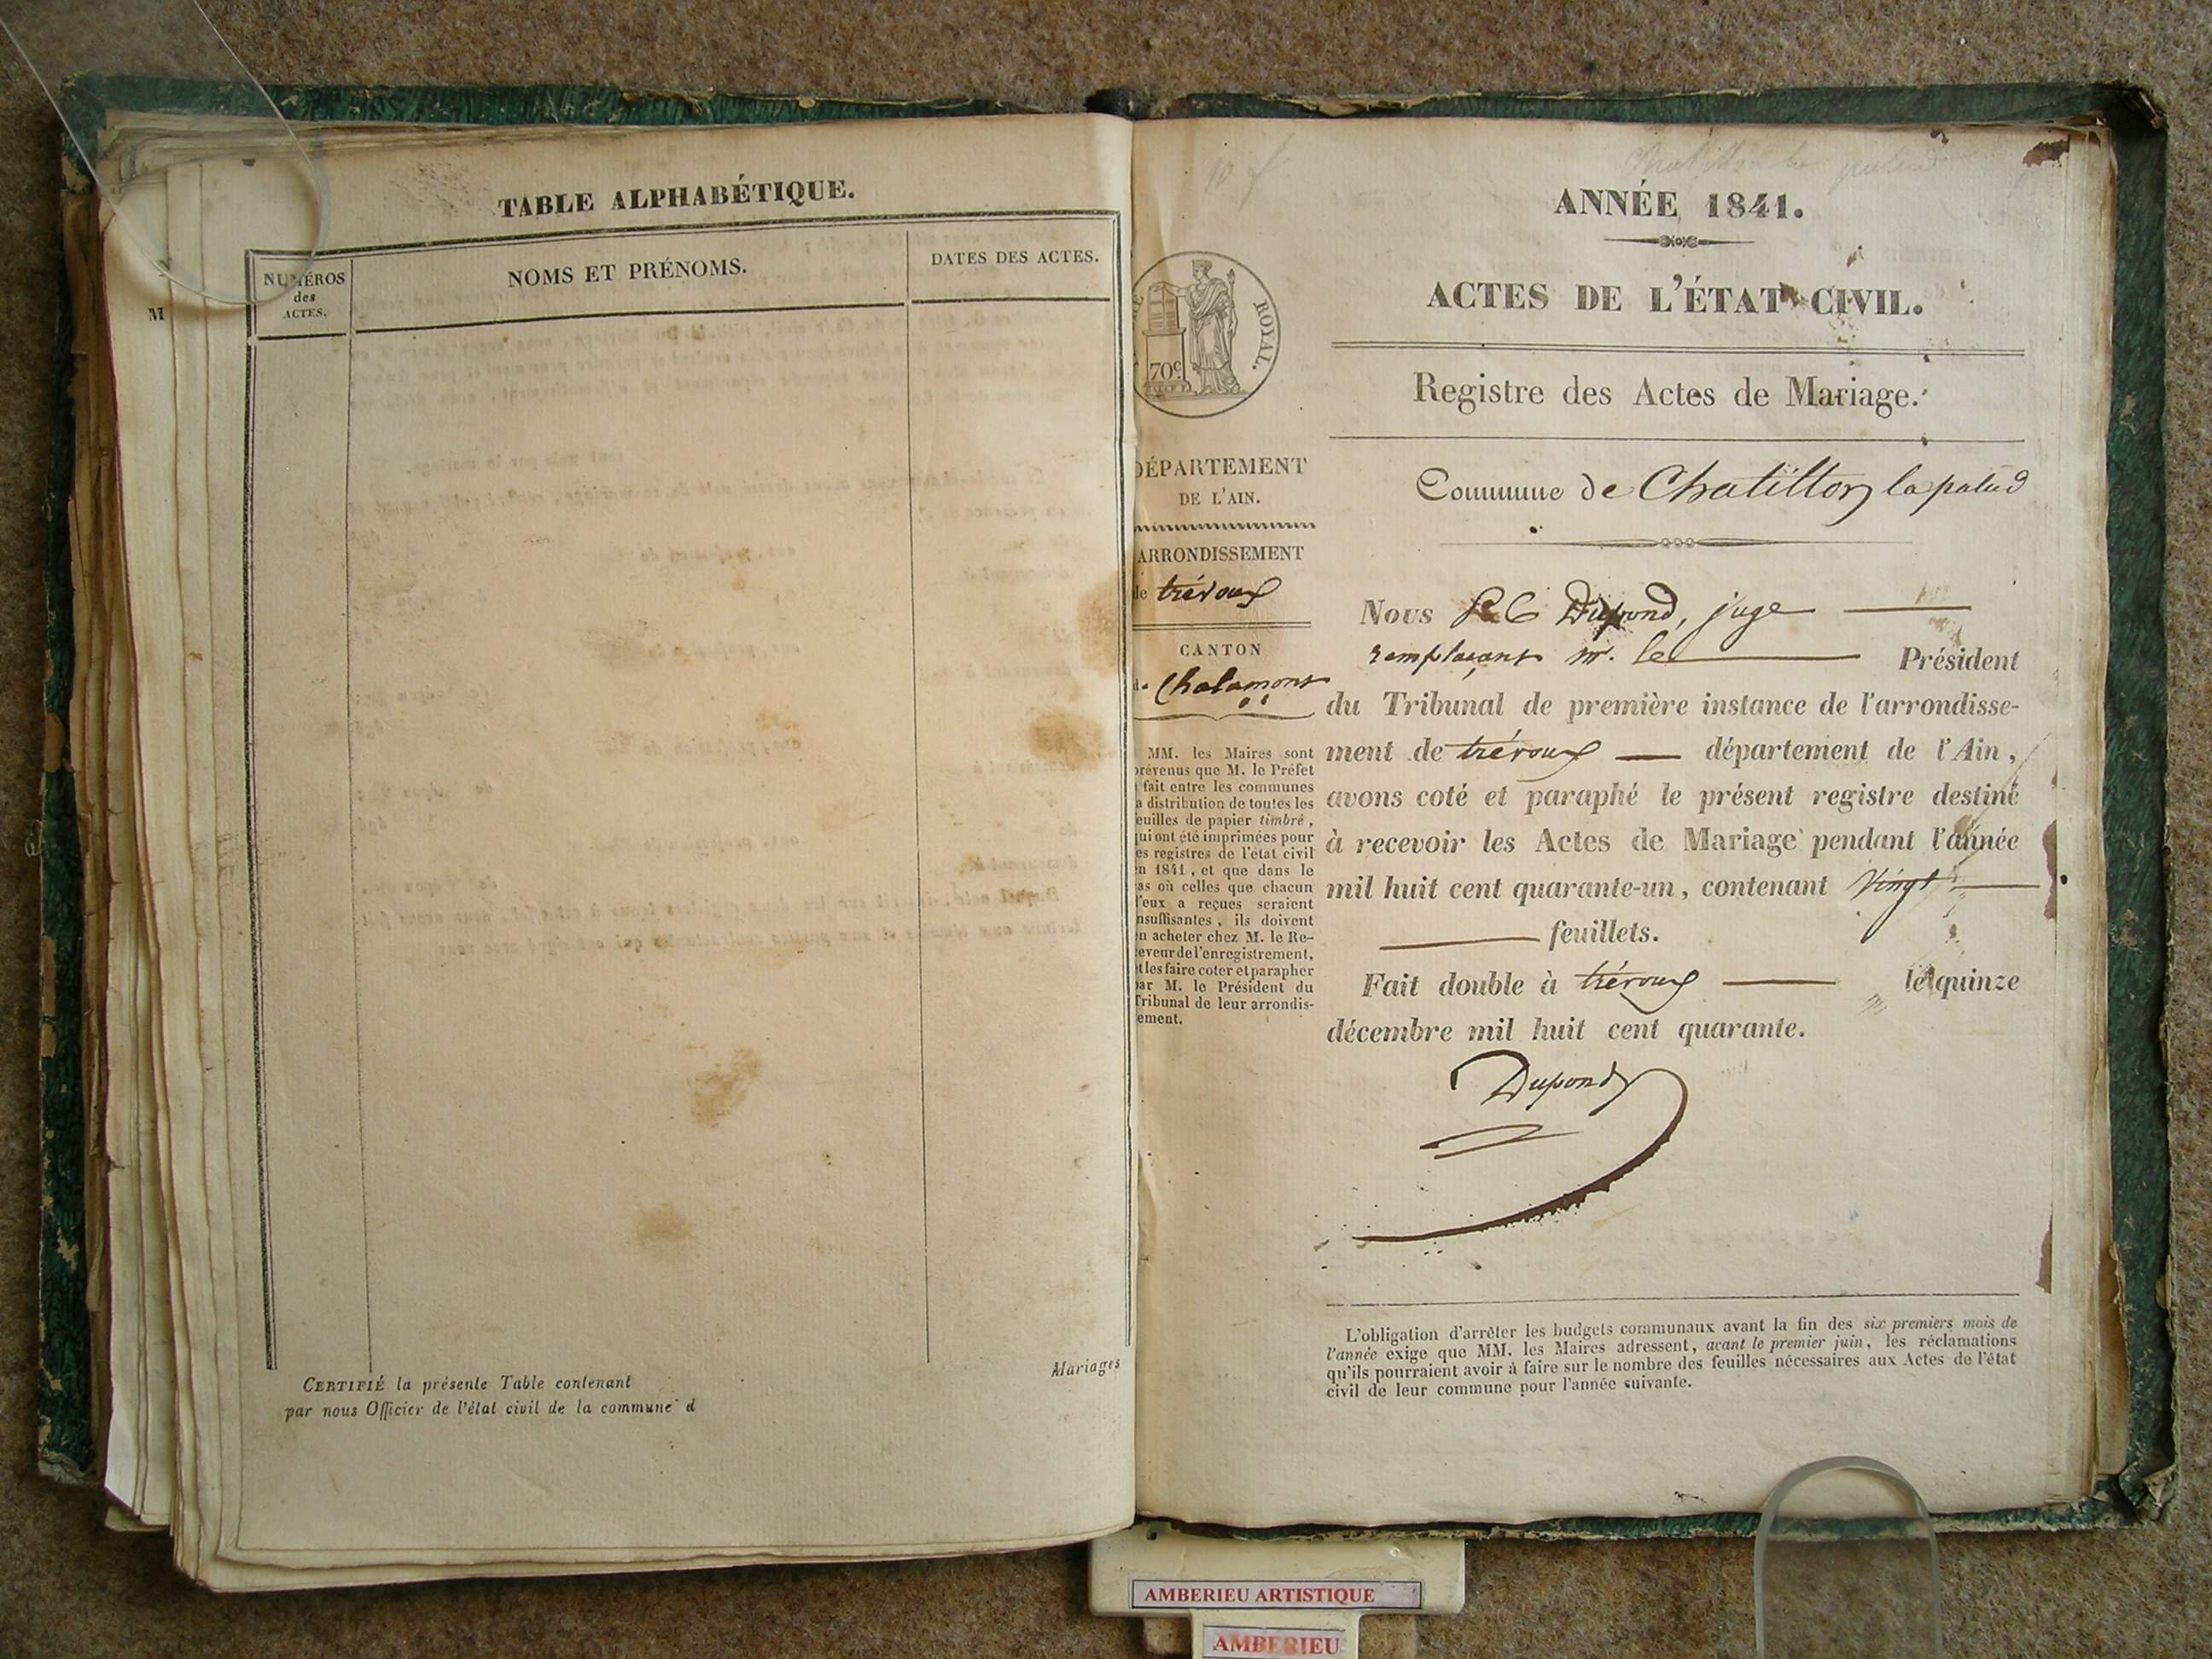 TABLE ALPHABÉTIQUE.
NUMÉROS
des
ACTES.
NOMS ET PRÉNOMS.
DATES DES ACTES.
M
CERTIFIÉ la présente Table contenant
par nous Officier de l'état civil de la commune d
Mariages
10 f
ANNÉE 1841.
ACTES DE L'ÉTAT CIVIL.
Registre des Actes de Mariage.
ROYAL.
70c
DÉPARTEMENT
DE L'AIN.
ARRONDISSEMENT
de trévoux
CANTON
de Chalamont
MM. les Maires sont
prévenus que M. le Préfet
a fait entre les communes
la distribution de toutes les
feuilles de papier timbré,
qui ont été imprimées pour
les registres de l'état civil
en 1841, et que dans le
cas où celles que chacun
d'eux a reçues seraient
insuffisantes, ils doivent
en acheter chez M. le Re-
ceveur de l'enregistrement,
et les faire coter et parapher
par M. le Président du
Tribunal de leur arrondis-
sement.
Commune de Chatillon la palud
Nous Dupond, juge
remplaçant mr. le Président
du Tribunal de première instance de l'arrondisse-
ment de trévoux département de l'Ain,
avons coté et paraphé le présent registre destiné
à recevoir les Actes de Mariage pendant l'année
mil huit cent quarante-un, contenant Vingt
feuillets.
Fait double à trévoux le quinze
décembre mil huit cent quarante.
Dupond
L'obligation d'arrêter les budgets communaux avant la fin des six premiers mois de
l'année exige que MM. les Maires adressent, avant le premier juin, les réclamations
qu'ils pourraient avoir à faire sur le nombre des feuilles nécessaires aux Actes de l'état
civil de leur commune pour l'année suivante.
AMBERIEU ARTISTIQUE
AMBERIEU